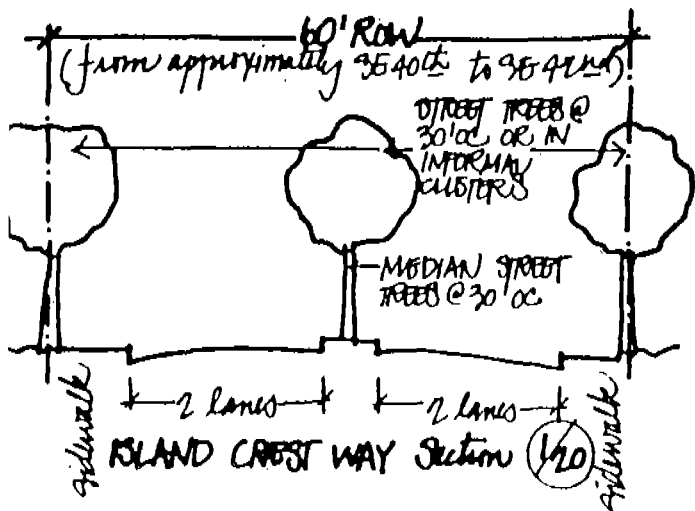 60' ROW
(from approximately SE 40th to SE 42nd)
STREET TREES @
30' OC OR IN
INFORMAL
CLUSTERS
MEDIAN STREET
TREES @ 30' OC
2 lanes
2 lanes
sidewalk
ISLAND CREST WAY Section 1/20
sidewalk